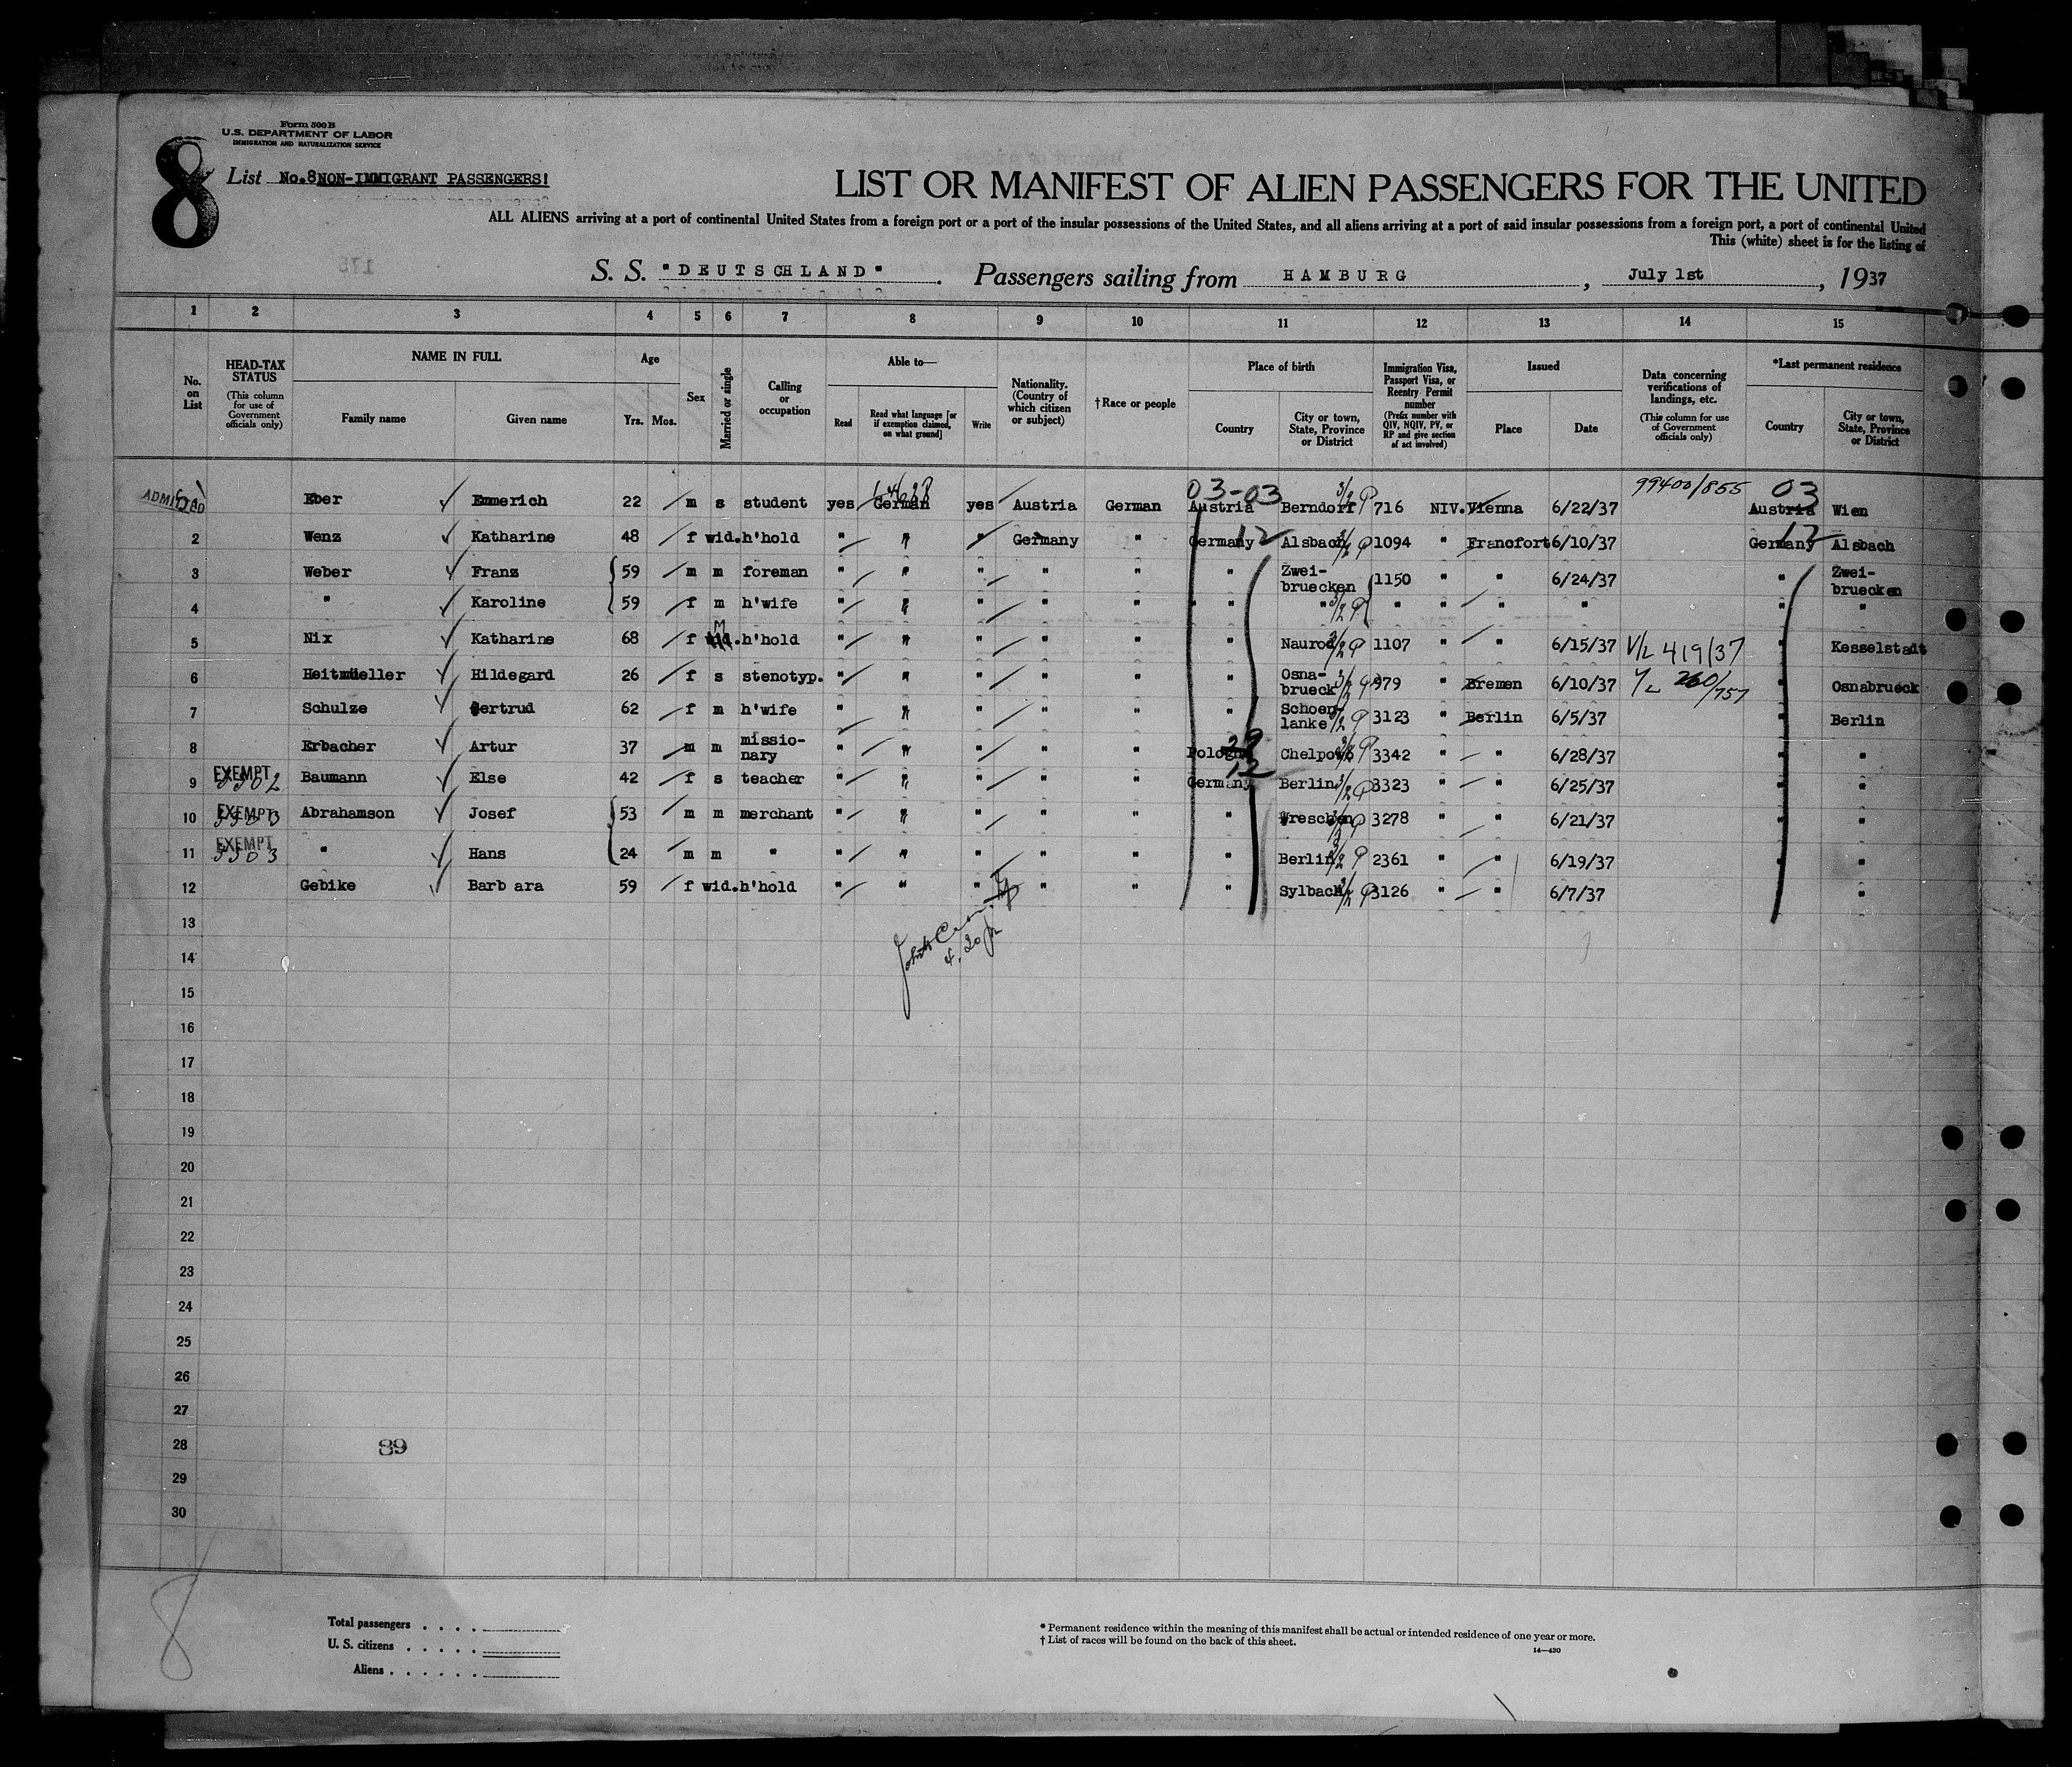 Form 500 B
U.S. DEPARTMENT OF LABOR
IMMIGRATION AND NATURALIZATION SERVICE
8
List No.8 NON-IMMIGRANT PASSENGERS!
LIST OR MANIFEST OF ALIEN PASSENGERS FOR THE UNITED
ALL ALIENS arriving at a port of continental United States from a foreign port or a port of the insular possessions of the United States, and all aliens arriving at a port of said insular possessions from a foreign port, a port of continental United
This (white) sheet is for the listing of
S. S. "DEUTSCHLAND". Passengers sailing from HAMBURG, July 1st, 1937
1 2 3 4 5 6 7 8 9 10 11 12 13 14 15
No. on List
HEAD-TAX STATUS (This column for use of Government officials only)
NAME IN FULL Family name Given name
Age Yrs. Mos.
Sex
Married or single
Calling or occupation
Able to— Read Read what language [or if exemption claimed, on what ground] Write
Nationality. (Country of which citizen or subject)
†Race or people
Place of birth Country City or town, State, Province or District
Immigration Visa, Passport Visa, or Reentry Permit number (Prefix number with QIV, NQIV, PV, or RP and give section of act involved)
Issued Place Date
Data concerning verifications of landings, etc. (This column for use of Government officials only)
*Last permanent residence Country City or town, State, Province or District
03-03 99400/855 03
ADMITTED Eber Emmerich 22 m s student yes German yes Austria German Austria Berndorf 716 NIV. Vienna 6/22/37 Austria Wien
2 Wenz Katharine 48 f wid. h'hold " " " Germany " Germany 12 Alsbach 1094 " Francfort 6/10/37 Germany 12 Alsbach
3 Weber Franz 59 m m foreman " " " " " " Zwei-bruecken 1150 " " 6/24/37 " Zwei-bruecken
4 " Karoline 59 f m h'wife " " " " " " " " " " " " "
5 Nix Katharine 68 f wid. M h'hold " " " " " " Naurod 1107 " " 6/15/37 V/L 419/37 " Kesselstadt
6 Heitmüeller Hildegard 26 f s stenotyp. " " " " " " Osna-brueck 979 " Bremen 6/10/37 V/L 260/757 " Osnabrueck
7 Schulze Gertrud 62 f m h'wife " " " " " " Schoen-lanke 3123 " Berlin 6/5/37 " Berlin
8 Erbacher Artur 37 m m missio-nary " " " " " Pologne 29 Chelpowo 3342 " " 6/28/37 " "
9 EXEMPT Baumann Else 42 f s teacher " " " " " Germany 12 Berlin 3323 " " 6/25/37 " "
10 EXEMPT Abrahamson Josef 53 m m merchant " " " " " " Wreschen 3278 " " 6/21/37 " "
11 EXEMPT 5503 " Hans 24 m m " " " " " " " Berlin 2361 " " 6/19/37 " "
12 Gebike Barb ara 59 f wid. h'hold " " " " " " Sylbach 3126 " " 6/7/37 "
13
14
15
16
17
18
19
20
21
22
23
24
25
26
27
28 89
29
30
8
Total passengers . . . .
U. S. citizens . . . . .
Aliens . . . . . .
* Permanent residence within the meaning of this manifest shall be actual or intended residence of one year or more.
† List of races will be found on the back of this sheet.
14—430